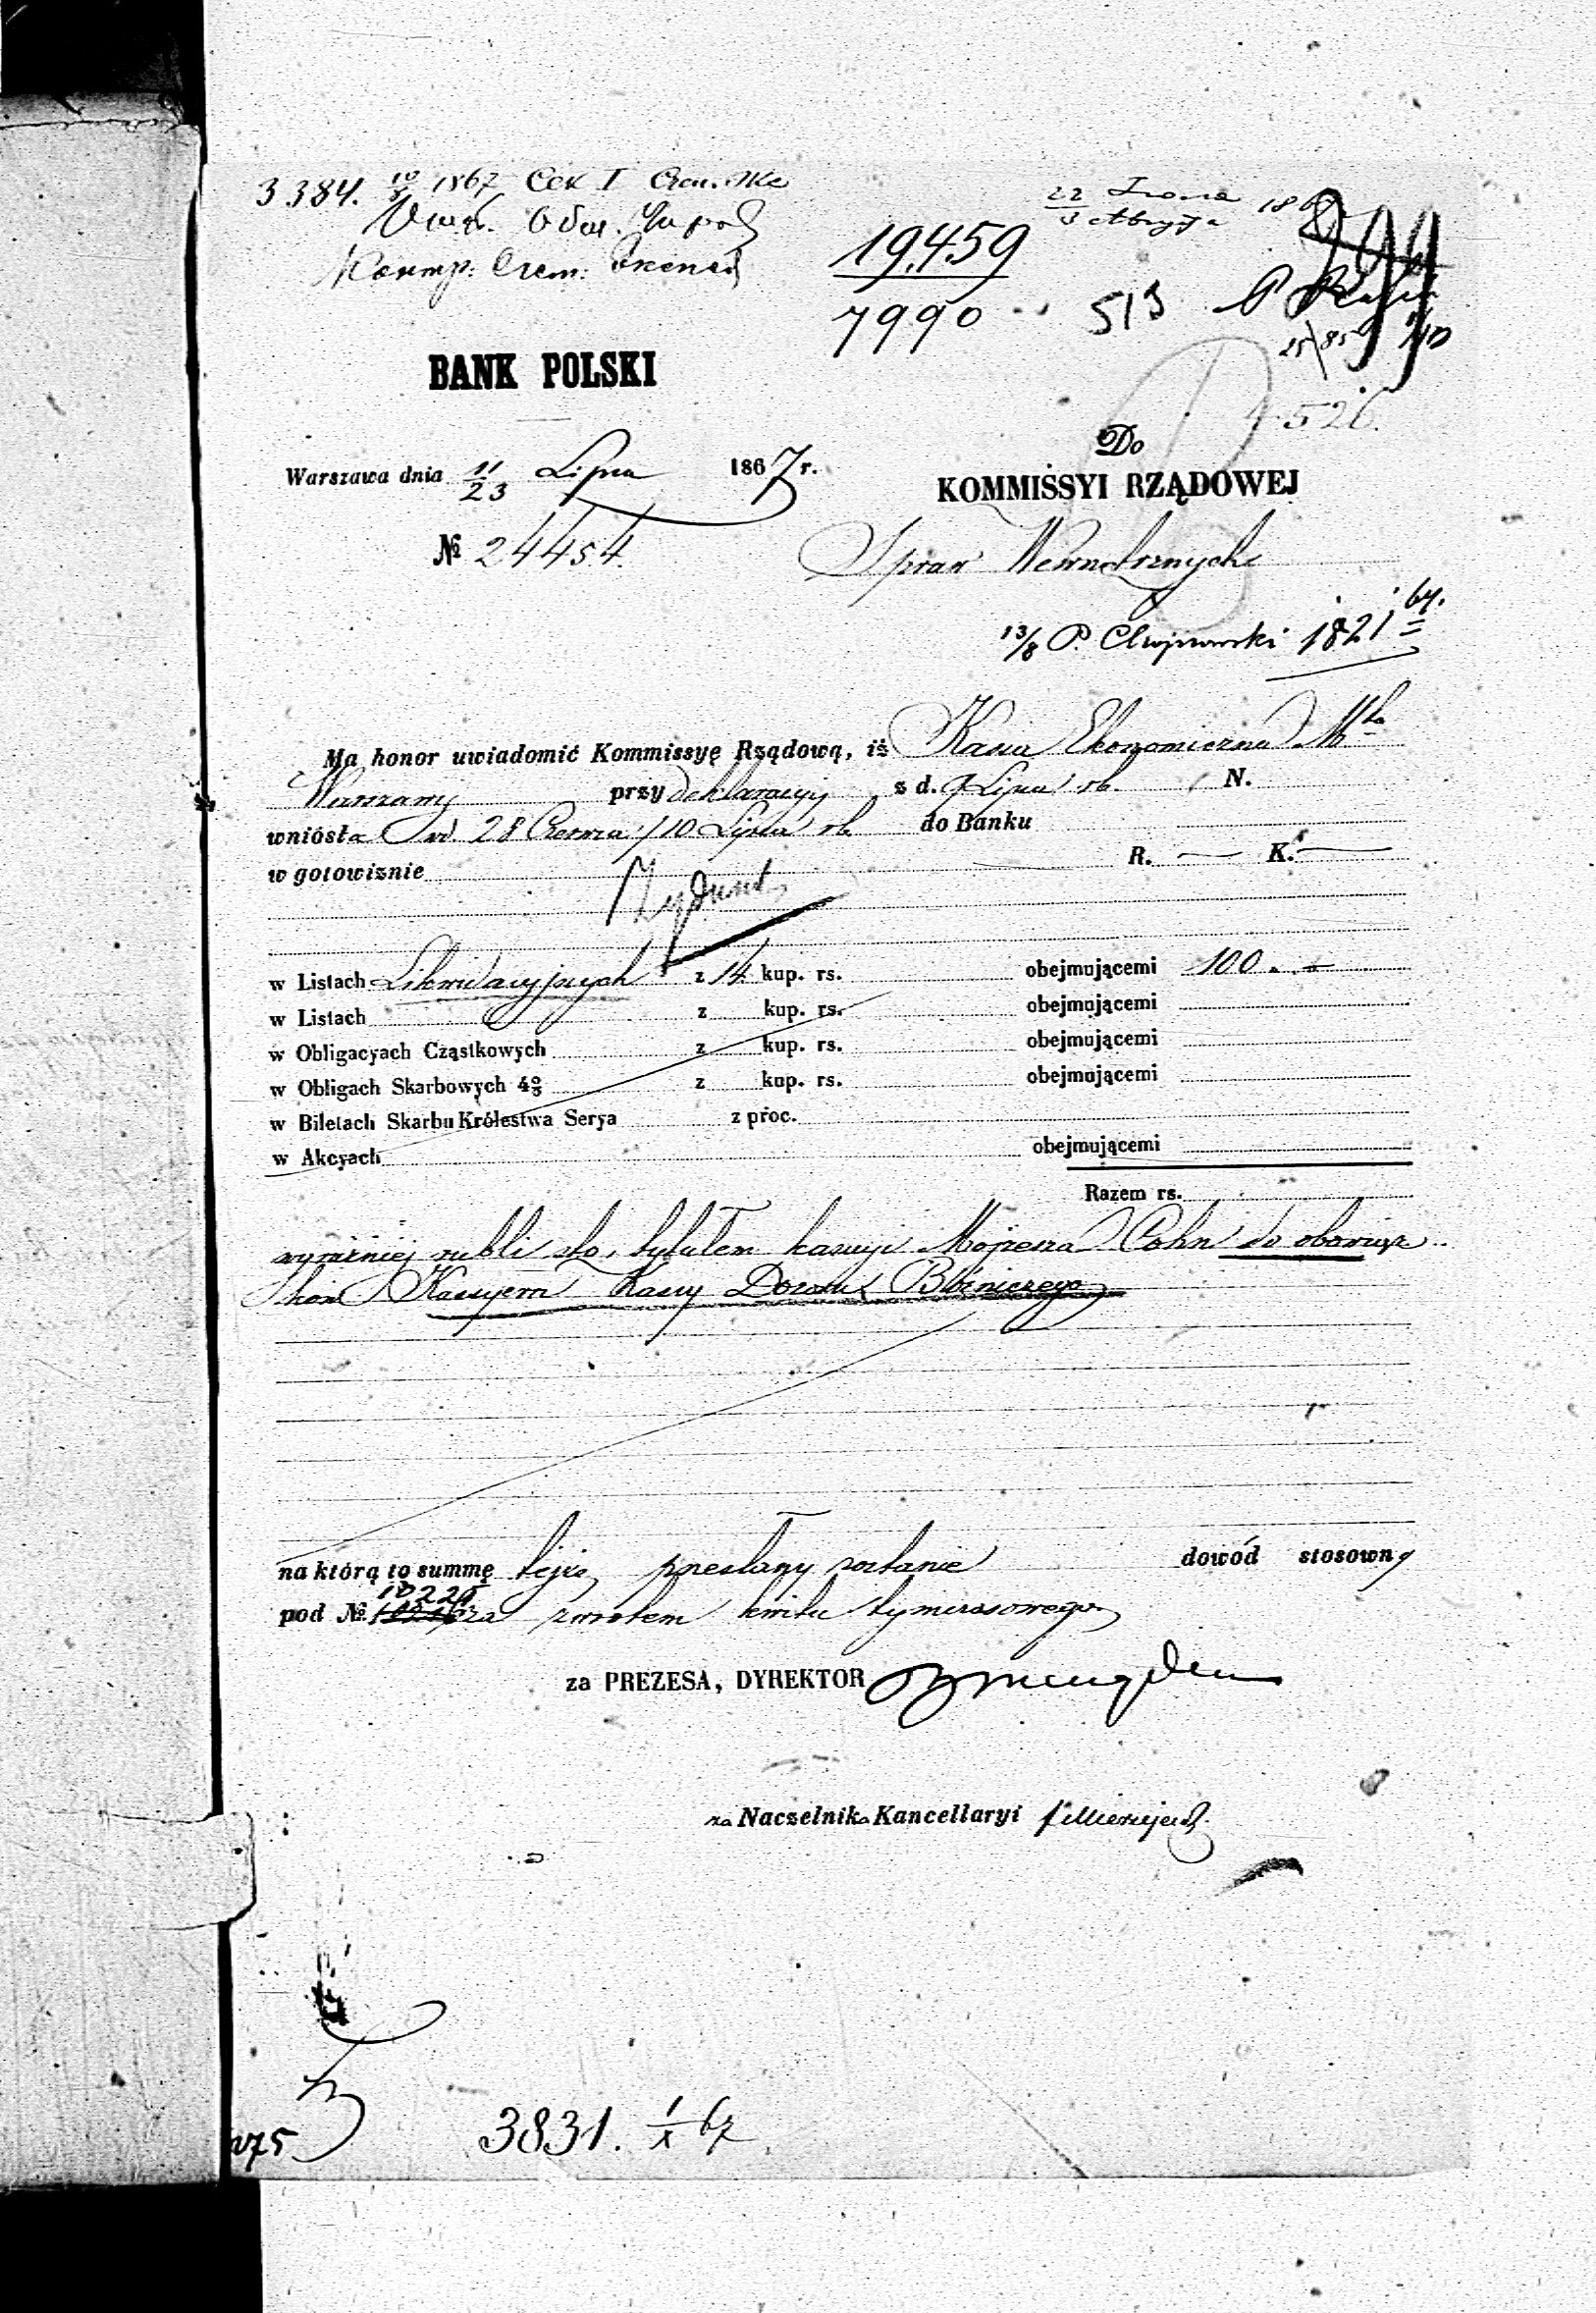 3384. 10/8 1867
22 / 3
19459
7990
513
25/8
4526.
BANK POLSKI
Do
Warszawa dnia 11/23 Lipca 1867 r.
KOMMISSYI RZĄDOWEJ
№ 24454.
Spraw Wewnętrznych
13/8 P. 1821 67.
Ma honor uwiadomić Kommissyę Rządową, iż Kassa Ekonomiczna Mta
Warszawy przy deklaracyi z d. 9 Lipca rb. N.
wniosła wd. 28 Czerwca / 10 Lipca rb. do Banku
w gotowiznie R. — K. —
w Listach Likwidacyjnych z 14 kup. rs. obejmującemi 100 . —
w Listach z kup. rs. obejmującemi
w Obligacyach Cząstkowych z kup. rs. obejmującemi
w Obligach Skarbowych 4% z kup. rs. obejmującemi
w Biletach Skarbu Królestwa Serya z proc.
w Akcyach obejmującemi
Razem rs.
wyraźniej rubli sto, tytułem kaucyi Mojżesza Cohn do obowiąz
ków Kassyera Kassy Dozoru Bóżniczego
na którą to summę tejże przesłany zostanie dowód stosowny
pod № 10225 za zwrotem kwitu tymczasowego
za PREZESA, DYREKTOR
za Naczelnika Kancellaryi
275
3831. 1/X 67.